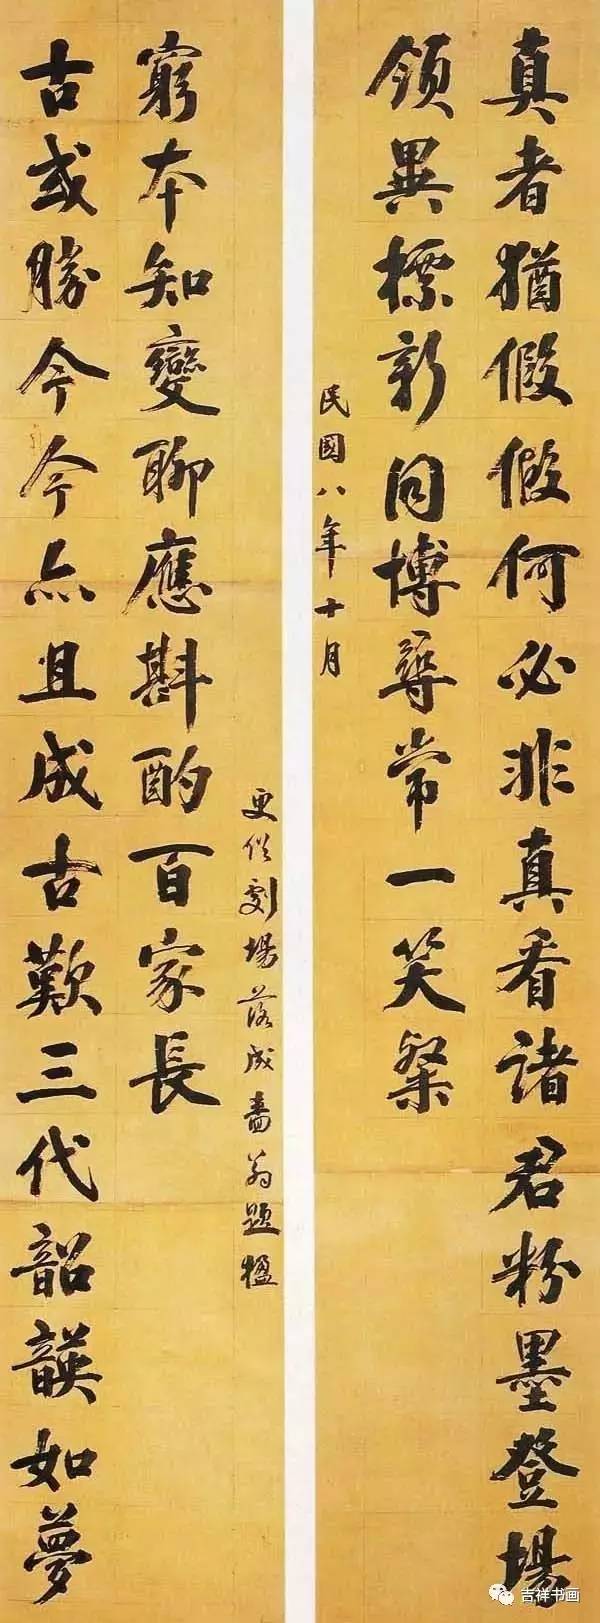 真者猶假假何必非真看諸君粉墨登場
領異標新同博尋常一笑粲
民國八年十月
古或勝今今亦且成古歎三代韶韺如夢
窮本知變聊應斟酌百家長
更俗劇場落成嗇翁題楹
吉祥书画